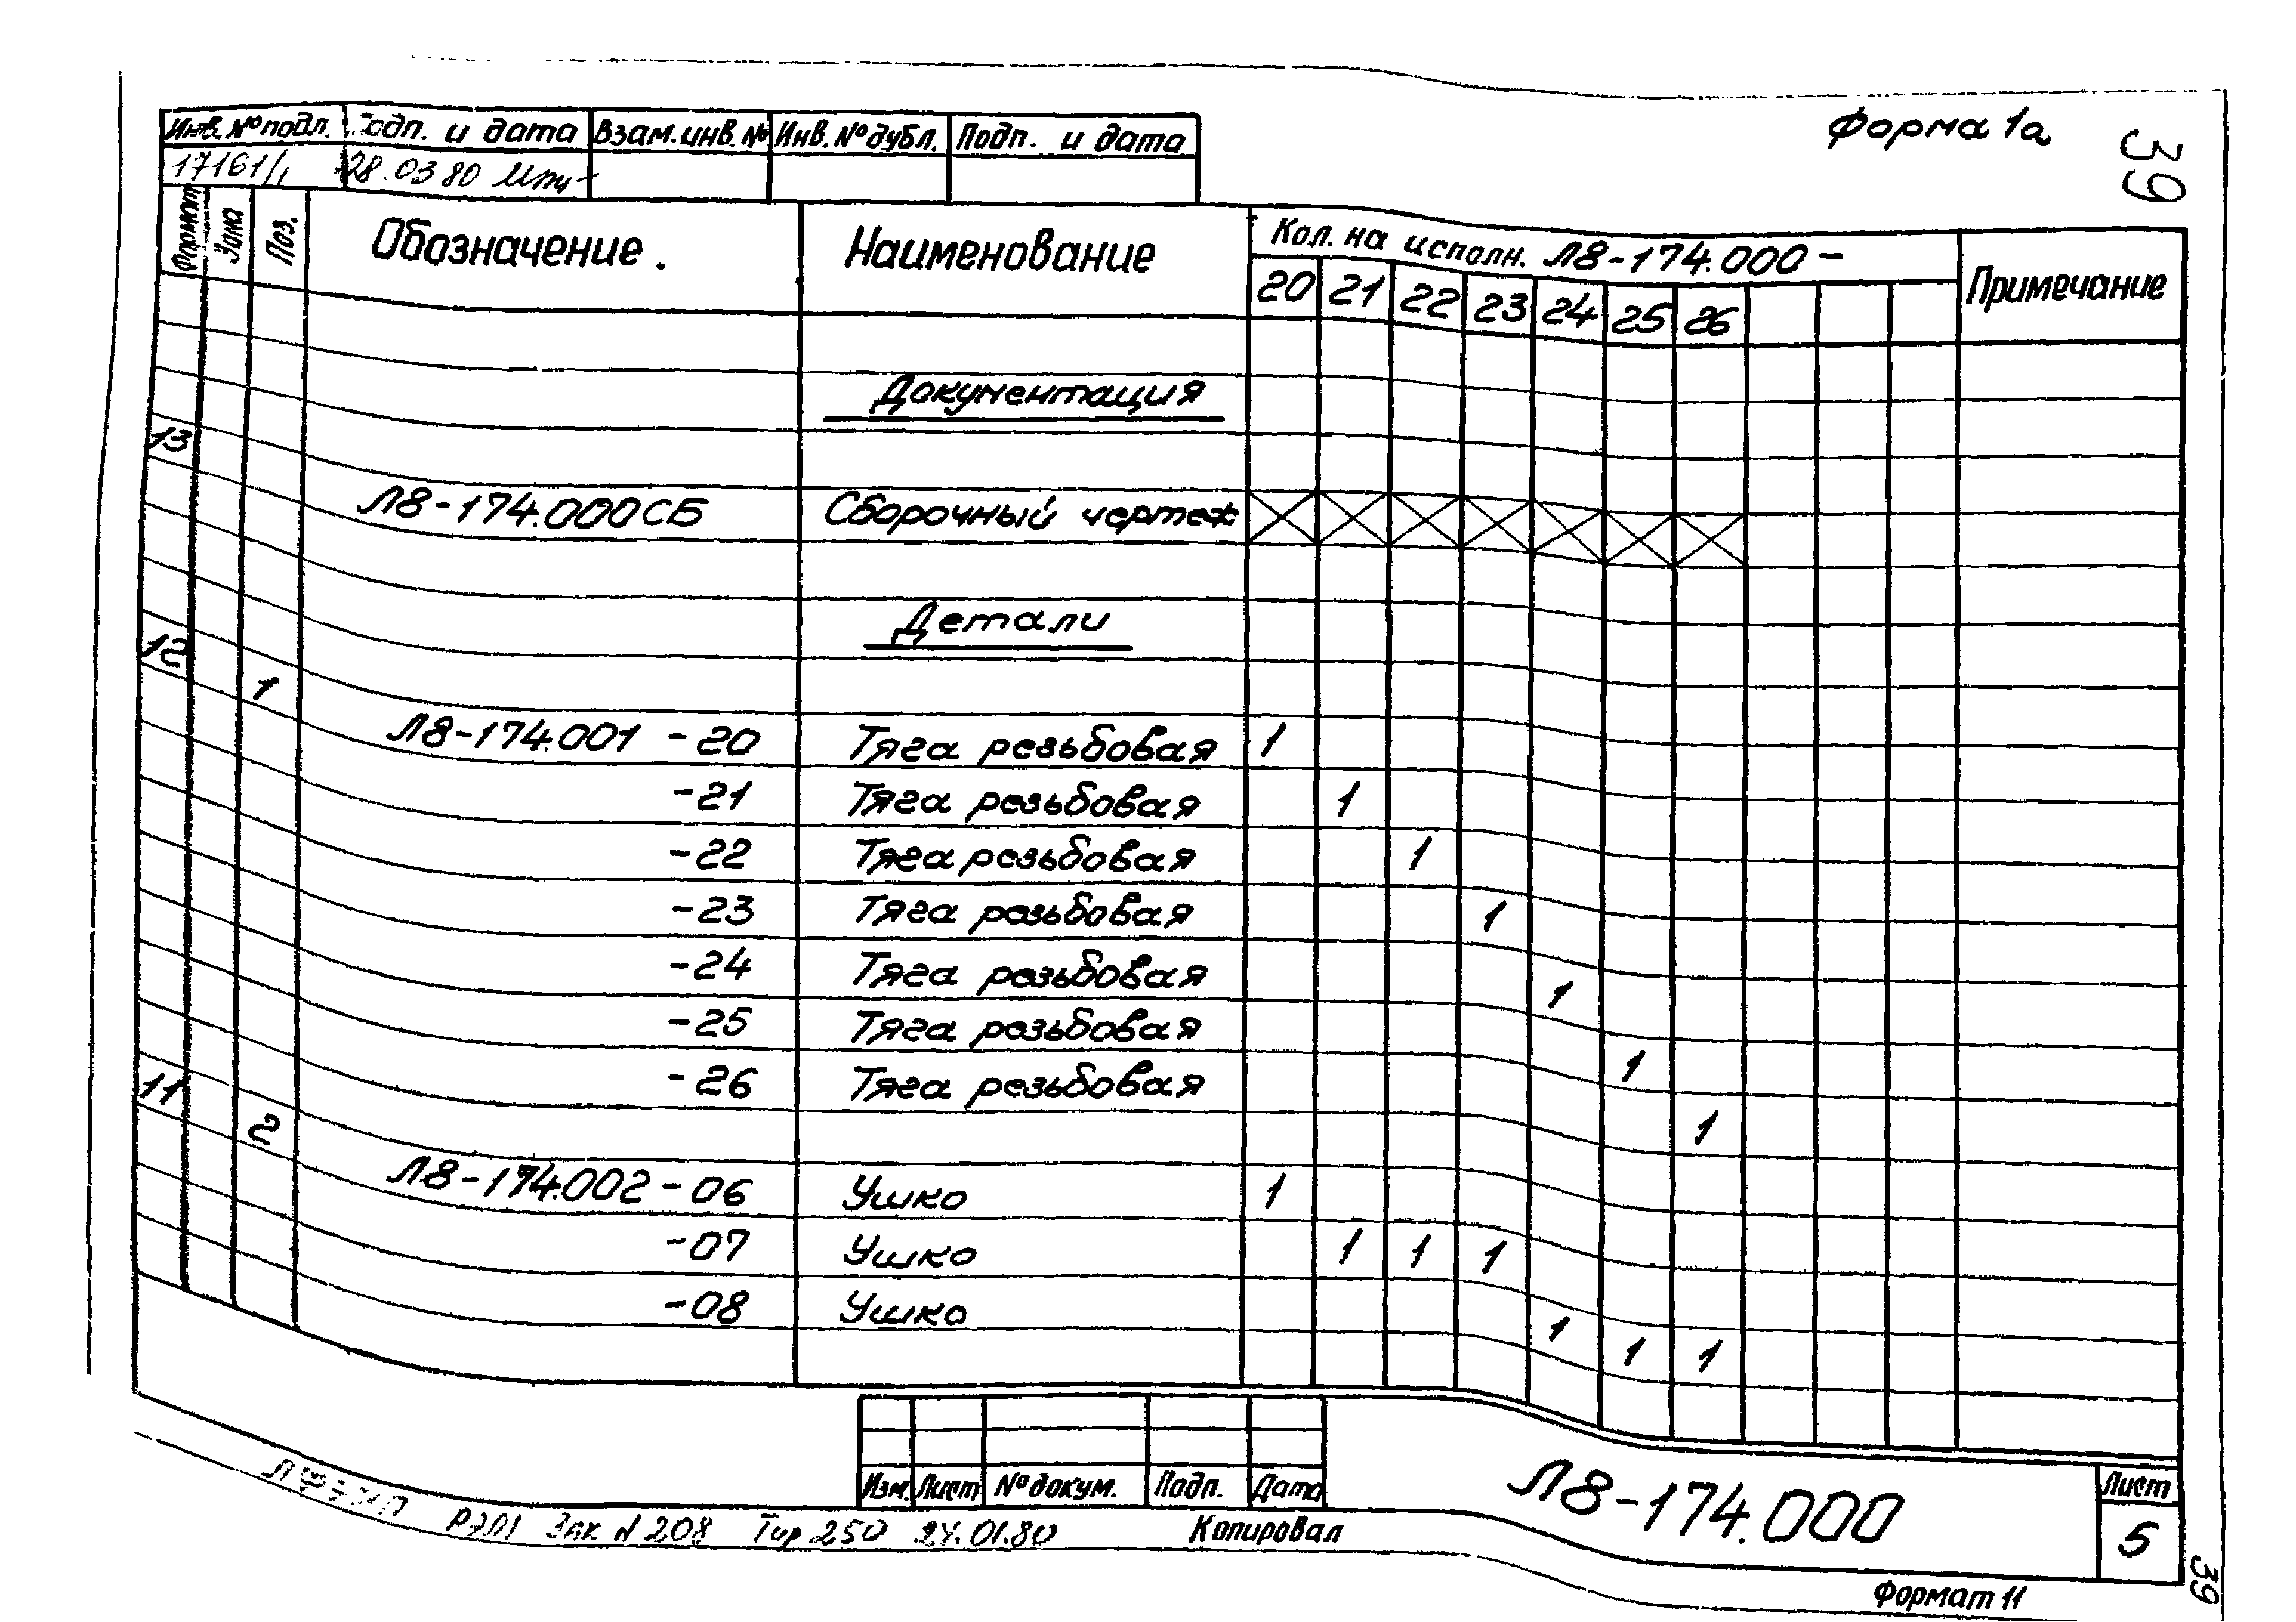 Форма 1а
39
Инв. № подл. Подп. и дата Взам. инв. № Инв. № дубл. Подп. и дата
17161/1 28.03.80
Формат Зона Поз. Обозначение. Наименование Кол. на исполн. Л8-174.000 - Примечание
20 21 22 23 24 25 26
Документация
13 Л8-174.000СБ Сборочный чертеж
Детали
12 1 Л8-174.001 -20 Тяга резьбовая 1
-21 Тяга резьбовая 1
-22 Тяга резьбовая 1
-23 Тяга резьбовая 1
-24 Тяга резьбовая 1
-25 Тяга резьбовая 1
-26 Тяга резьбовая 1
11 2 Л8-174.002 -06 Ушко 1
-07 Ушко 1 1 1
-08 Ушко 1 1 1
Изм. Лист № докум. Подп. Дата
Л8-174.000
Лист
5
Зак N 208 Тир 250 24.01.80
Копировал
Формат 11
39